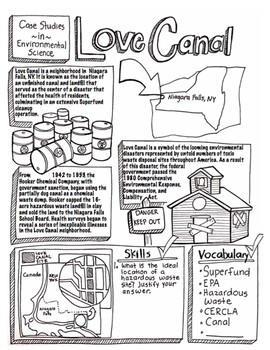 Case Studies
~in~
Environmental
Science
Love Canal
Love Canal is a neighborhood in Niagara
Falls, NY. It is known as the location of
an unfinished canal and landfill that
served as the center of a disaster that
affected the health of residents,
culminating in an extensive Superfund
cleanup
operation.
Niagara Falls, NY
From 1942 to 1953, the
Hooker Chemical Company, with
government sanction, began using the
partially dug canal as a chemical
waste dump. Hooker capped the 16-
acre hazardous waste landfill in clay
and sold the land to the Niagara Falls
School Board. Health surveys began to
reveal a series of inexplicable illnesses
in the Love Canal neighborhood.
Love Canal is a symbol of the looming environmental
disasters represented by untold numbers of toxic
waste disposal sites throughout America. As a result
of this disaster, the federal
government passed the
1980 Comprehensive
Environmental Response,
Compensation, and
Liability Act.
DANGER
KEEP OUT
LOVE CANAL
Canada
New York
Niagara
Falls
Skills
1. What is the ideal
location of a
hazardous waste
site? Justify your
answer.
Vocabulary
- Superfund
- EPA
- Hazardous
waste
- CERCLA
- Canal